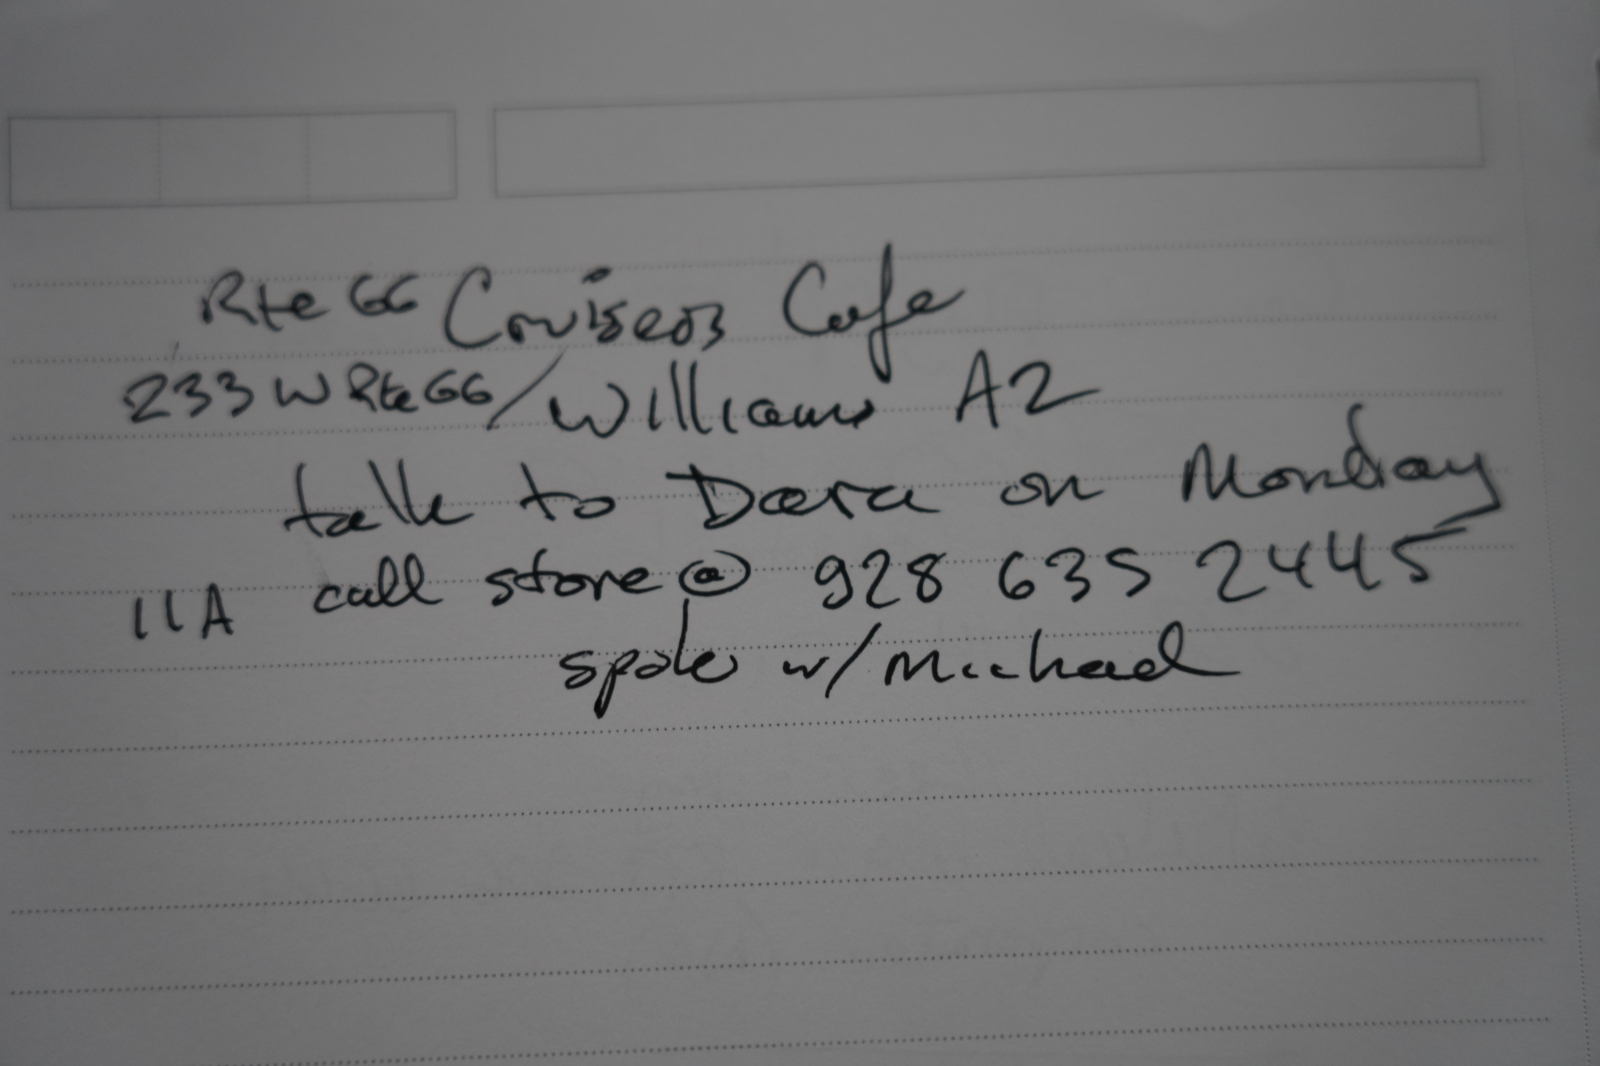 Rte 66 Cruisers Cafe
233 W Rte 66 / Williams AZ
talk to Dara on Monday
11A call store @ 928 635 2445
spoke w/ Michael